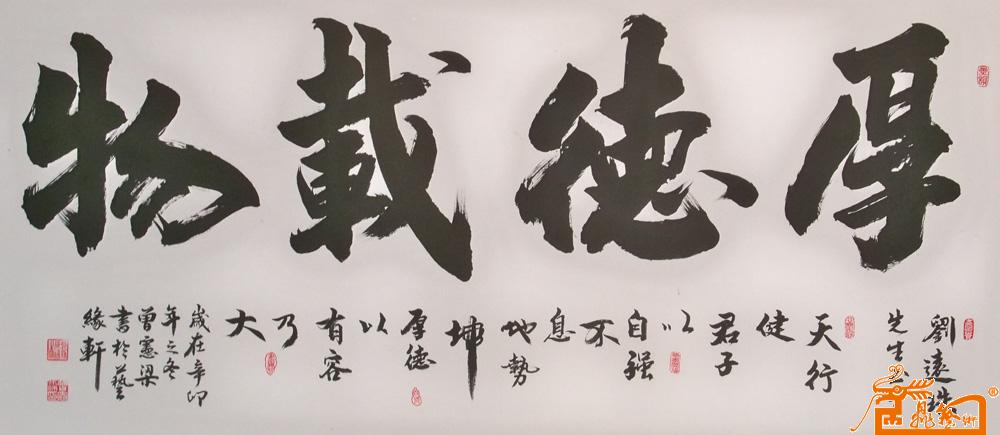 厚德載物
劉遠珠
先生
天行
健
君子
以
自强
不
息
地勢
坤
厚德
以
有容
乃
大
歲在辛卯
年之冬
曾憲梁
書於藝
緣軒